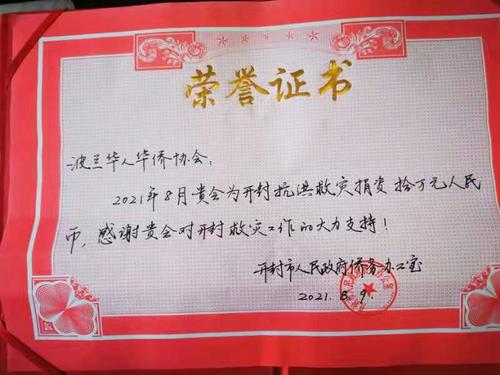 荣誉证书
波兰华人华侨协会:
2021年8月贵会为开封抗洪救灾捐资拾万元人民
币,感谢贵会对开封救灾工作的大力支持!
开封市人民政府侨务办公室
2021.8.9.